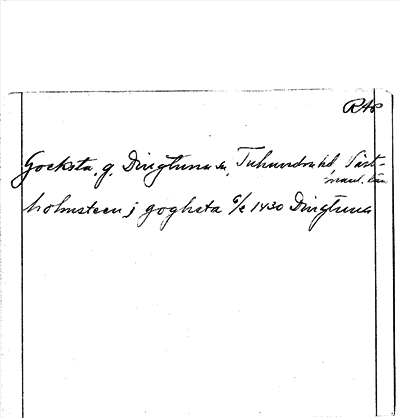 RAp
Gocksta. g. Dingtuna sn, Tuhundra hd Väst-
manl. län
holmsteen j goghsta 6/2 1430 Dingtuna